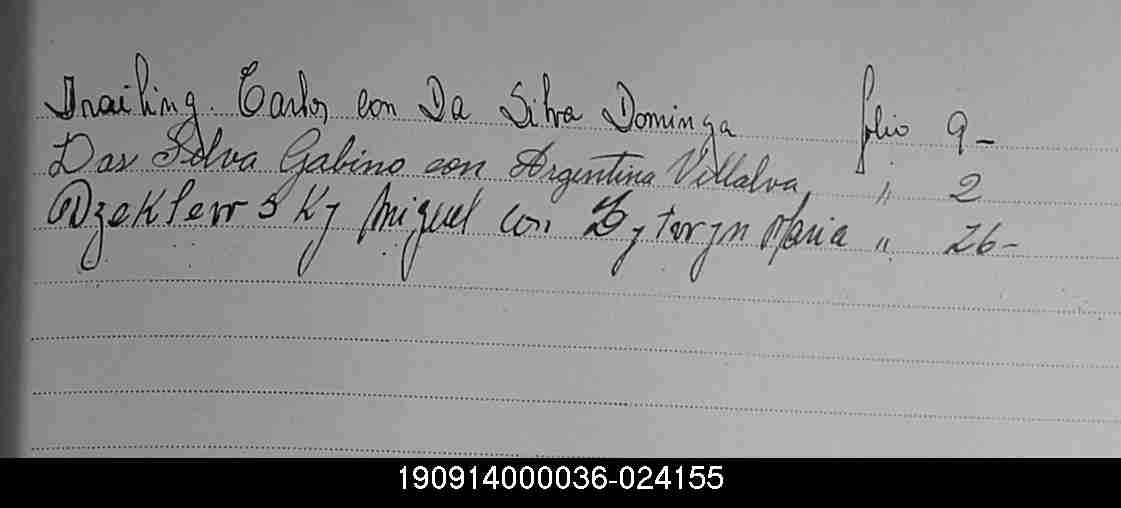 Drailing. Carlos con Da Silva Dominga folio 9-
Das Silva Gabino con Argentina Villalva, " 2
Dzeklewski Miguel con Maria " 26-
190914000036-024155